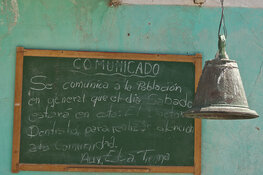 COMUNICADO
Se comunica a la Población
en general que el día Sabado
estara en esta: El
Dentista, para realizar atención
a la Comunidad.